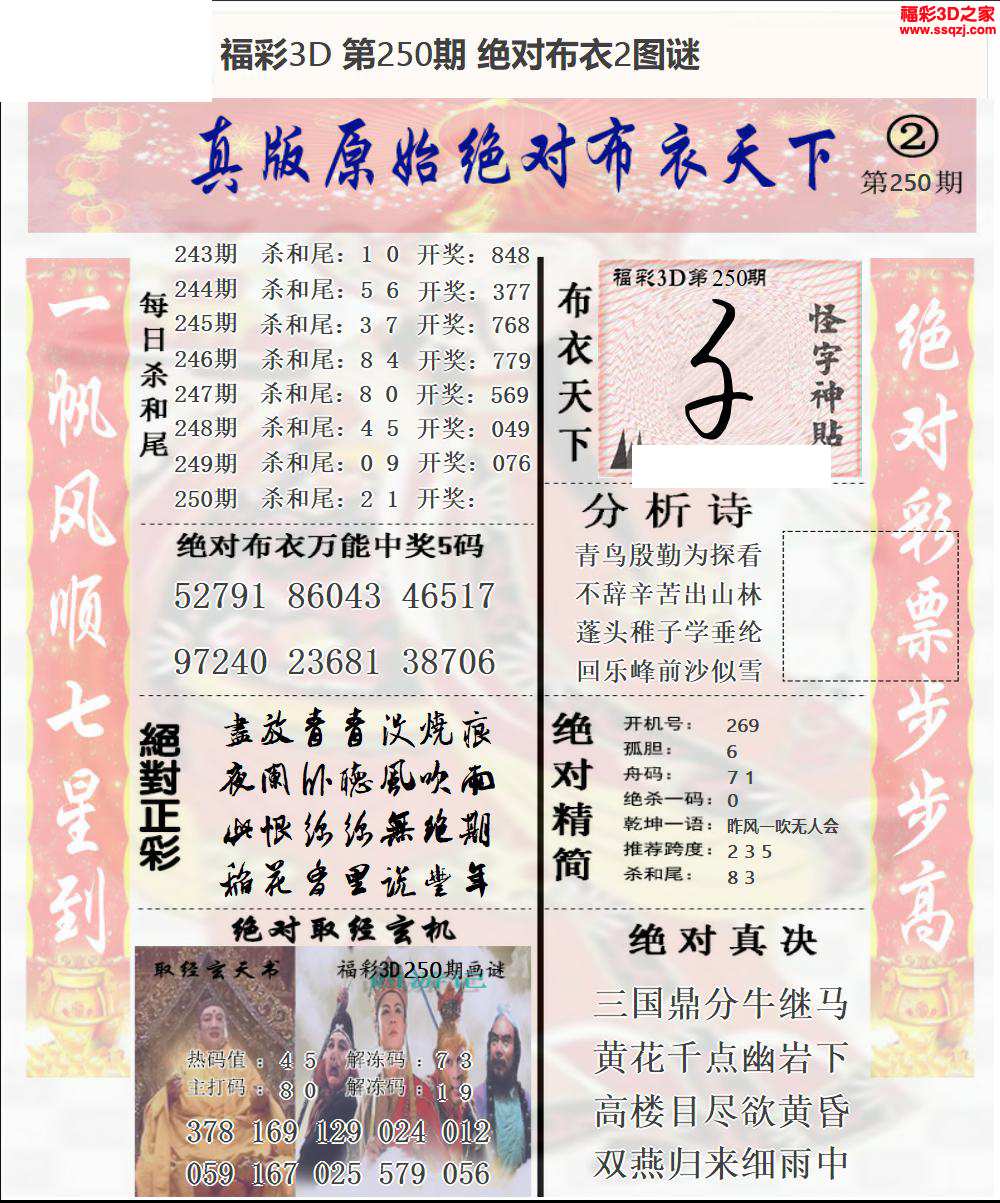 福彩3D之家
www.ssqzj.com
福彩3D 第250期 绝对布衣2图谜
真版原始绝对布衣天下
②
第250期
一帆风顺七星到
每日杀和尾
243期 杀和尾：1 0 开奖：848
244期 杀和尾：5 6 开奖：377
245期 杀和尾：3 7 开奖：768
246期 杀和尾：8 4 开奖：779
247期 杀和尾：8 0 开奖：569
248期 杀和尾：4 5 开奖：049
249期 杀和尾：0 9 开奖：076
250期 杀和尾：2 1 开奖：
绝对布衣万能中奖5码
52791 86043 46517
97240 23681 38706
絕對正彩
盡放青青没燒痕
夜阑卧聽風吹雨
此恨綿綿無绝期
稻花香里说豐年
绝对取经玄机
取经玄天书
福彩3D250期画谜
热码值：4 5 解冻码：7 3
主打码：8 0 解冻码：1 9
378 169 129 024 012
059 167 025 579 056
布衣天下
福彩3D第250期
子
怪字神貼
分析诗
青鸟殷勤为探看
不辞辛苦出山林
蓬头稚子学垂纶
回乐峰前沙似雪
绝对精简
开机号：269
孤胆：6
舟码：7 1
绝杀一码：0
乾坤一语：昨风一吹无人会
推荐跨度：2 3 5
杀和尾：8 3
绝对真决
三国鼎分牛继马
黄花千点幽岩下
高楼目尽欲黄昏
双燕归来细雨中
绝对彩票步步高